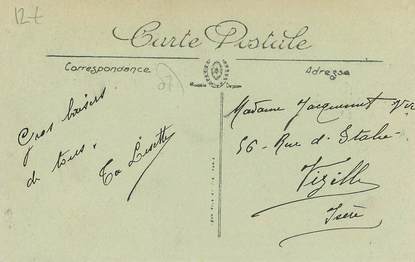 12-
Carte Postale
Correspondance
Adresse
Gros baisers
de tous.
Ta Lisette
Madame Jacquemet Vve
56 - Rue d'Italie -
Vizille
Isère